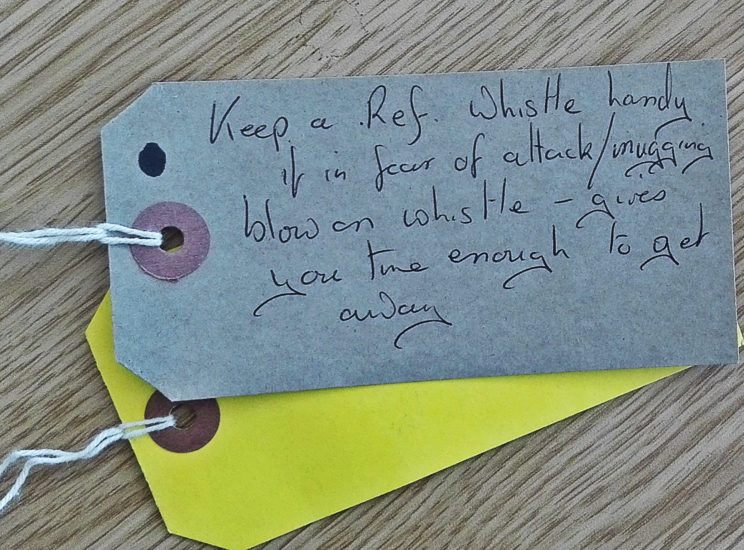 Keep a Ref. Whistle handy
if in fear of attack/mugging
blow on whistle - gives
you time enough to get
away